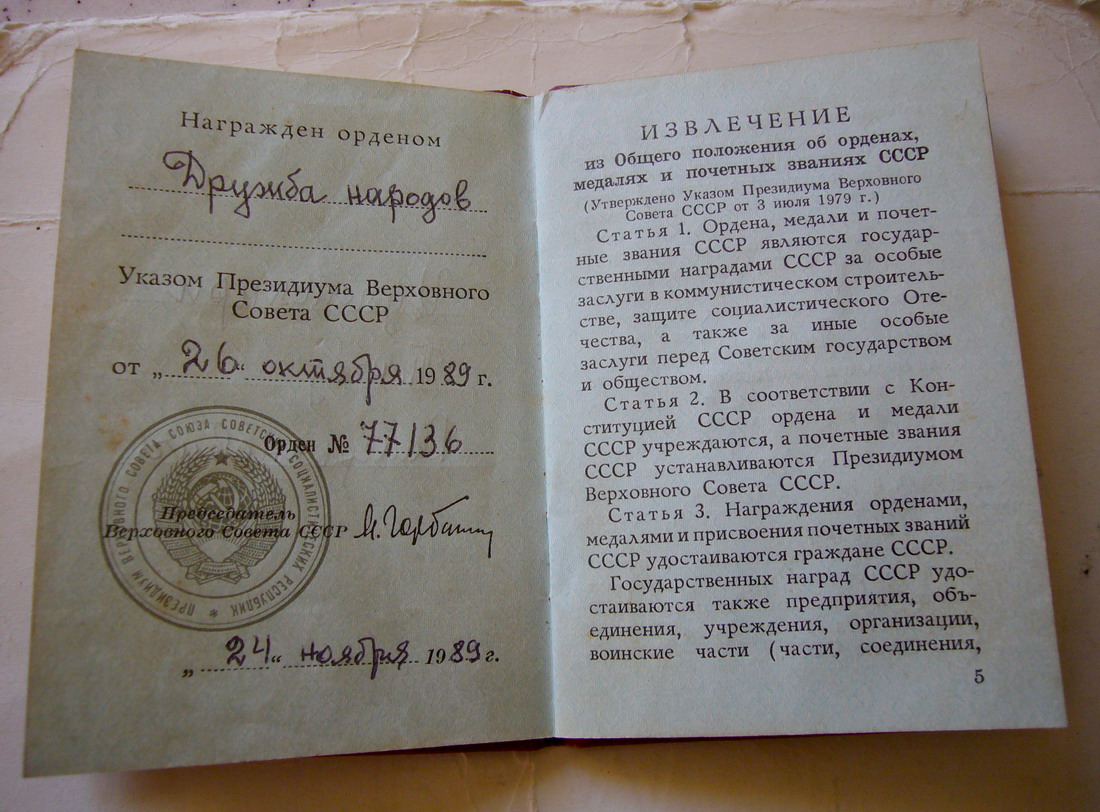 Награжден орденом
Дружба народов
Указом Президиума Верховного
Совета СССР
от „26“ октября 1989 г.
Орден № 77136
ПРЕЗИДИУМ ВЕРХОВНОГО СОВЕТА СОЮЗА СОВЕТСКИХ СОЦИАЛИСТИЧЕСКИХ РЕСПУБЛИК *
Председатель
Верховного Совета СССР М. Горбачев
„24“ ноября 1989 г.
ИЗВЛЕЧЕНИЕ
из Общего положения об орденах,
медалях и почетных званиях СССР
(Утверждено Указом Президиума Верховного
Совета СССР от 3 июля 1979 г.)
Статья 1. Ордена, медали и почет-
ные звания СССР являются государ-
ственными наградами СССР за особые
заслуги в коммунистическом строитель-
стве, защите социалистического Оте-
чества, а также за иные особые
заслуги перед Советским государством
и обществом.
Статья 2. В соответствии с Кон-
ституцией СССР ордена и медали
СССР учреждаются, а почетные звания
СССР устанавливаются Президиумом
Верховного Совета СССР.
Статья 3. Награждения орденами,
медалями и присвоения почетных званий
СССР удостаиваются граждане СССР.
Государственных наград СССР удо-
стаиваются также предприятия, объ-
единения, учреждения, организации,
воинские части (части, соединения,
5